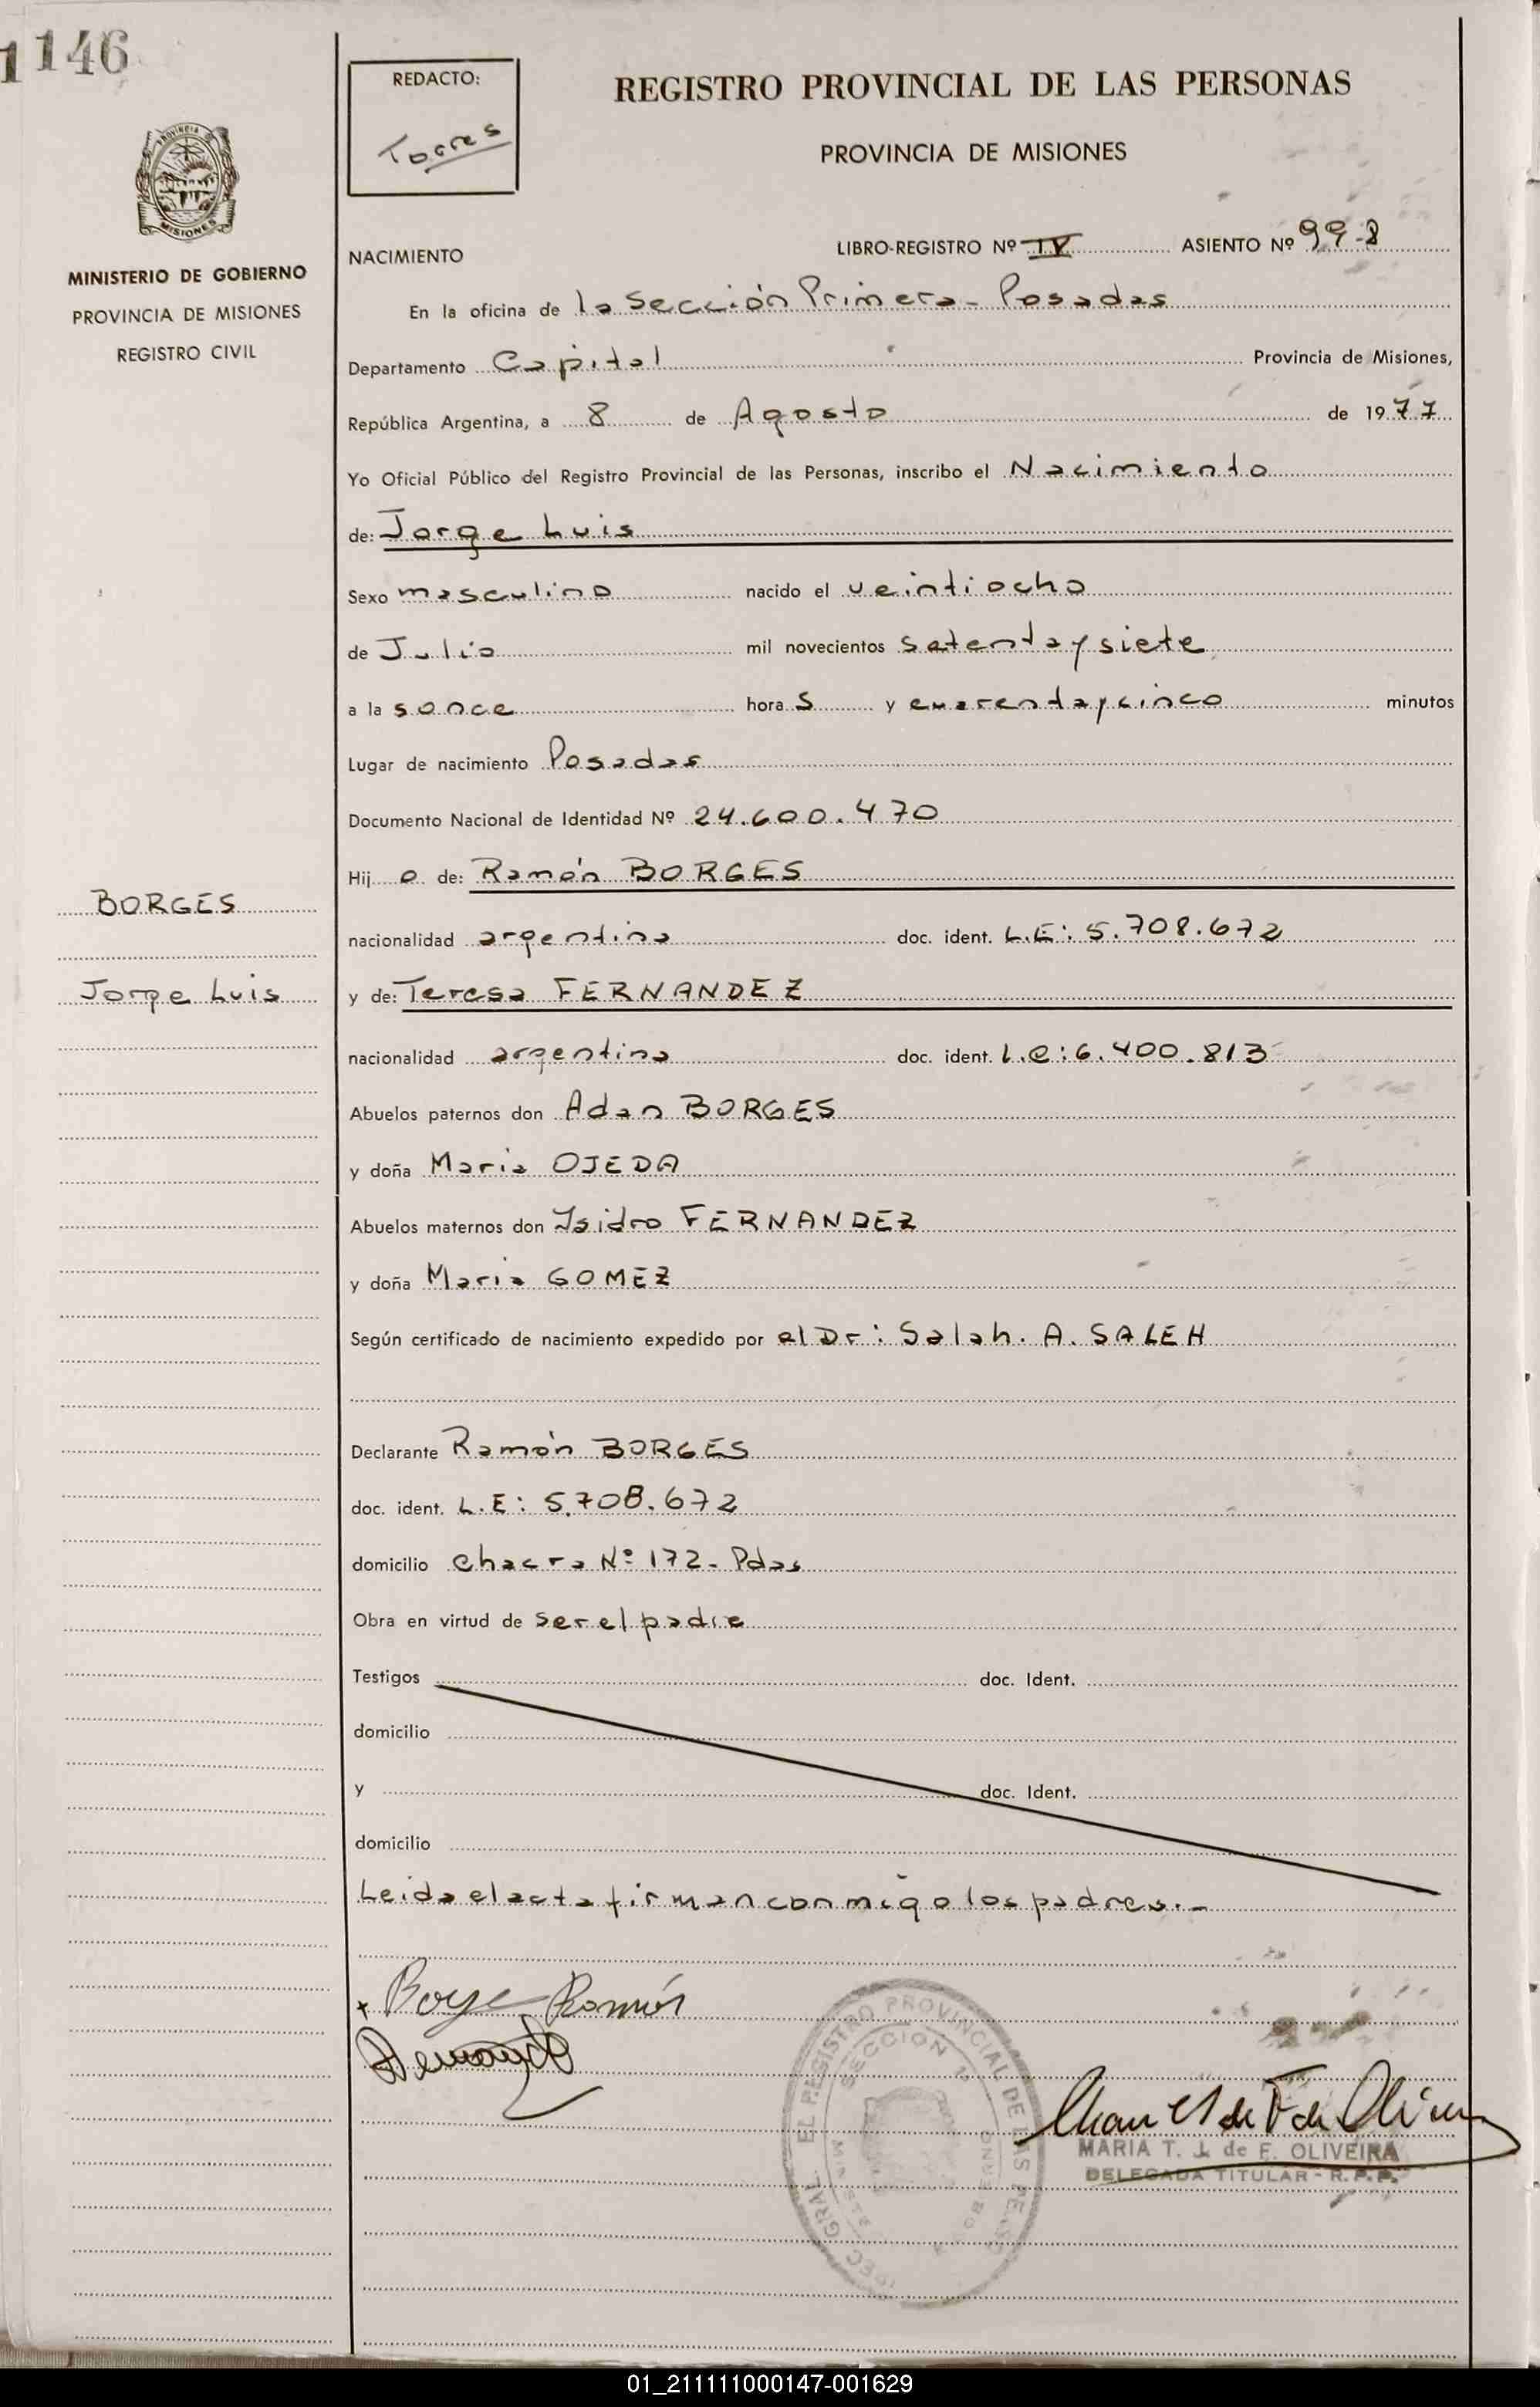 1146
REDACTO:
Torres
REGISTRO PROVINCIAL DE LAS PERSONAS
PROVINCIA DE MISIONES
MISIONES
MINISTERIO DE GOBIERNO
PROVINCIA DE MISIONES
REGISTRO CIVIL
NACIMIENTO LIBRO-REGISTRO Nº IV ASIENTO Nº 998
En la oficina de la Sección Primera - Posadas
Departamento Capital Provincia de Misiones,
República Argentina, a 8 de Agosto de 1977
Yo Oficial Público del Registro Provincial de las Personas, inscribo el Nacimiento
de: Jorge Luis
Sexo masculino nacido el veintiocho
de Julio mil novecientos setenta y siete
a la s once hora s y cuarenta y cinco minutos
Lugar de nacimiento Posadas
Documento Nacional de Identidad Nº 24.600.470
Hij o de: Ramón BORGES
BORGES
nacionalidad argentina doc. ident. L.E: 5.708.672
Jorge Luis
y de: Teresa FERNANDEZ
nacionalidad argentina doc. ident. L.C: 6.400.813
Abuelos paternos don Adan BORGES
y doña Maria OJEDA
Abuelos maternos don Isidro FERNANDEZ
y doña Maria GOMEZ
Según certificado de nacimiento expedido por el Dr: Salah. A. SALEH
Declarante Ramón BORGES
doc. ident. L.E: 5.708.672
domicilio Chacra Nº 172 - Pdas
Obra en virtud de ser el padre
Testigos doc. Ident.
domicilio
y doc. Ident.
domicilio
Leida el acta firman conmigo los padres.-
Ramón
EL REGISTRO PROVINCIAL DE LAS
SECCION 1a
MARIA T. J. de F. OLIVEIRA
DELEGADA TITULAR - R.P.P.
01_211111000147-001629